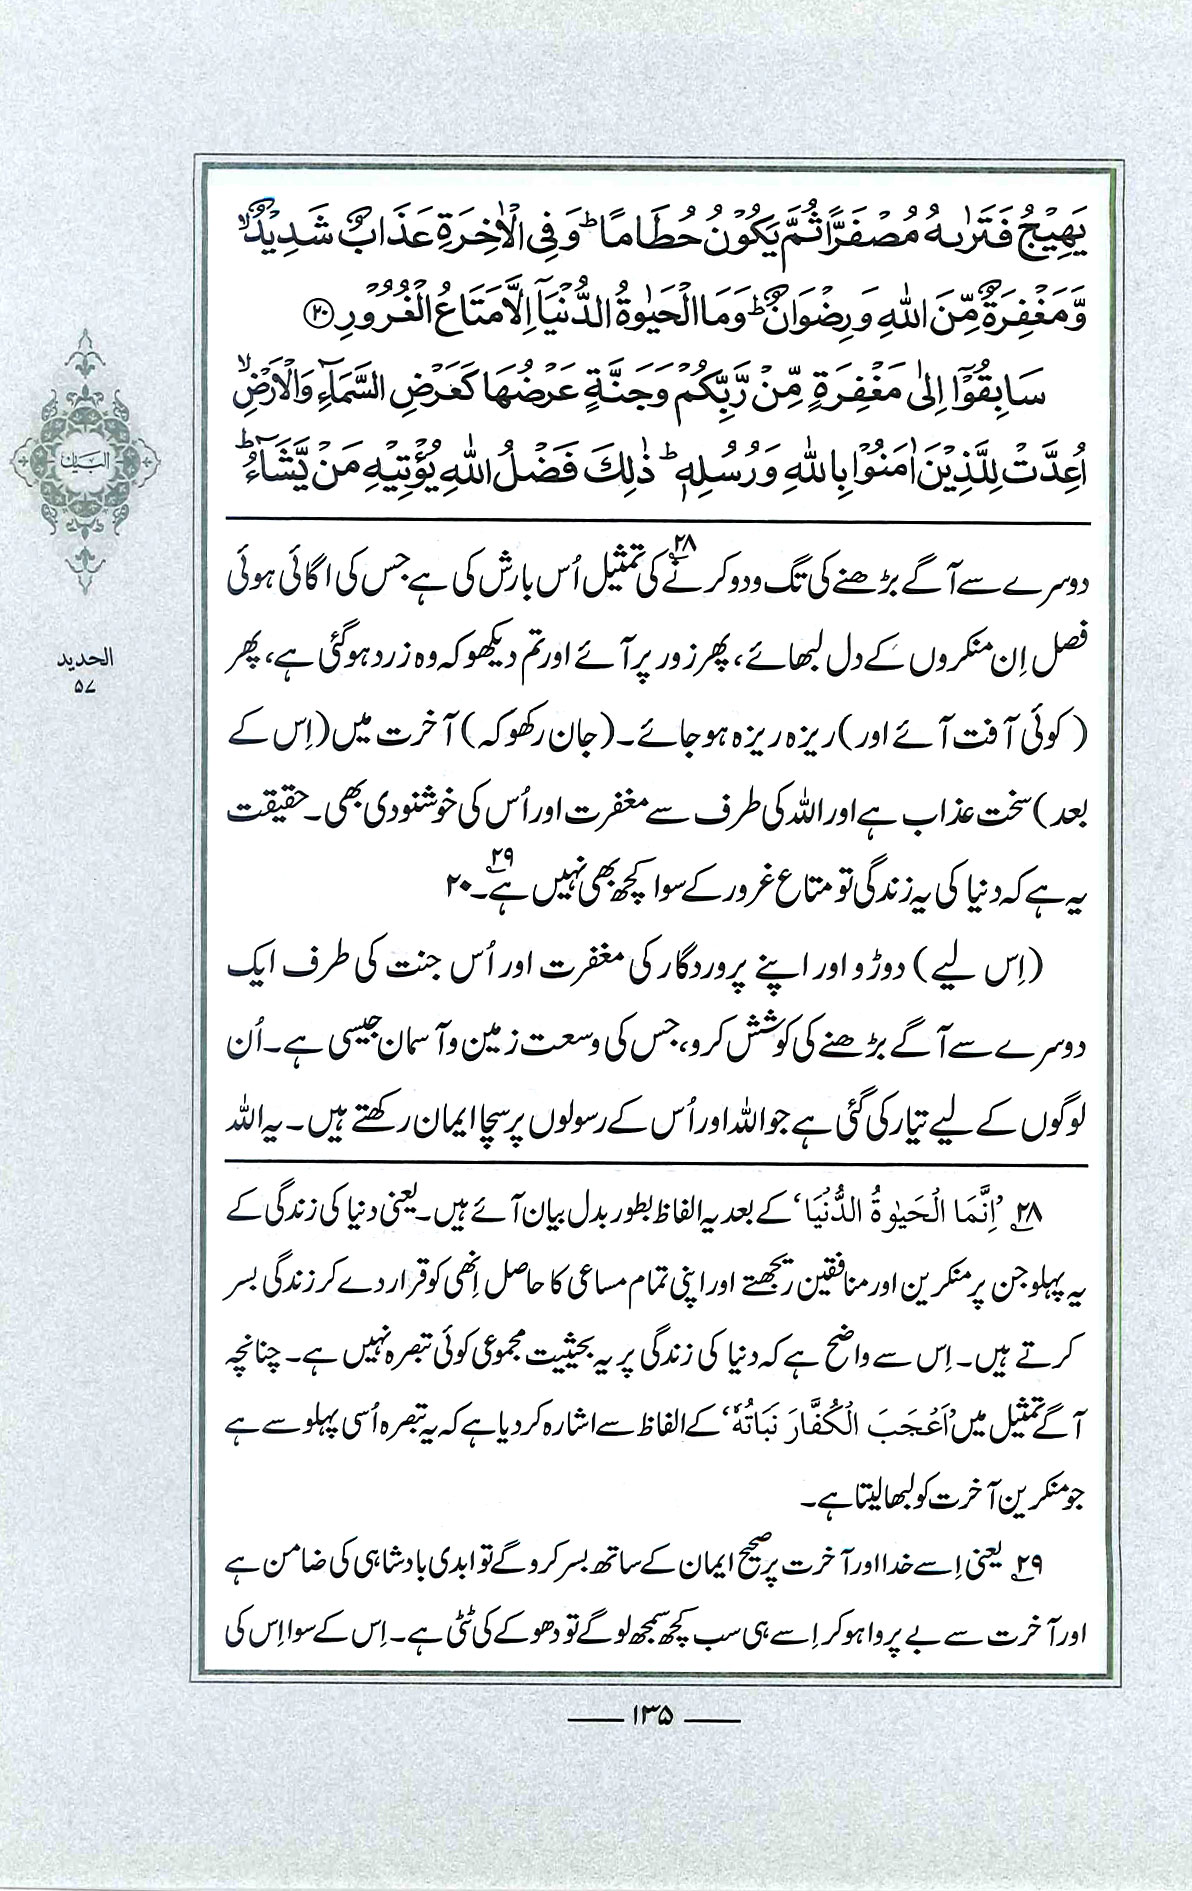 يَهِيْجُ فَتَرٰىهُ مُصْفَرًّا ثُمَّ يَكُوْنُ حُطَامًا ؕ وَفِى الْاٰخِرَةِ عَذَابٌ شَدِيْدٌ ۙ
وَّمَغْفِرَةٌ مِّنَ اللّٰهِ وَرِضْوَانٌ ؕ وَمَا الْحَيٰوةُ الدُّنْيَآ اِلَّا مَتَاعُ الْغُرُوْرِ ﴿۲۰﴾
سَابِقُوْٓا اِلٰى مَغْفِرَةٍ مِّنْ رَّبِّكُمْ وَجَنَّةٍ عَرْضُهَا كَعَرْضِ السَّمَآءِ وَالْاَرْضِ ۙ
اُعِدَّتْ لِلَّذِيْنَ اٰمَنُوْا بِاللّٰهِ وَرُسُلِهٖ ؕ ذٰلِكَ فَضْلُ اللّٰهِ يُؤْتِيْهِ مَنْ يَّشَآءُ ؕ
البیان
الحدید
۵۷
دوسرے سے آگے بڑھنے کی تگ و دو کرنے۲۸ کی تمثیل اُس بارش کی ہے جس کی اگائی ہوئی
فصل اِن منکروں کے دل لبھائے، پھر زور پر آئے اور تم دیکھو کہ وہ زرد ہو گئی ہے، پھر
(کوئی آفت آئے اور) ریزہ ریزہ ہو جائے۔ (جان رکھو کہ) آخرت میں (اِس کے
بعد) سخت عذاب ہے اور اللہ کی طرف سے مغفرت اور اُس کی خوشنودی بھی۔ حقیقت
یہ ہے کہ دنیا کی یہ زندگی تو متاع غرور کے سوا کچھ بھی نہیں ہے۔۲۹ ۲۰
(اِس لیے) دوڑو اور اپنے پروردگار کی مغفرت اور اُس جنت کی طرف ایک
دوسرے سے آگے بڑھنے کی کوشش کرو، جس کی وسعت زمین و آسمان جیسی ہے۔ اُن
لوگوں کے لیے تیار کی گئی ہے جو اللہ اور اُس کے رسولوں پر سچا ایمان رکھتے ہیں۔ یہ اللہ
۲۸ ’اِنَّمَا الْحَيٰوةُ الدُّنْيَا‘ کے بعد یہ الفاظ بطور بدل بیان آئے ہیں۔ یعنی دنیا کی زندگی کے
یہ پہلو جن پر منکرین اور منافقین ریجھتے اور اپنی تمام مساعی کا حاصل اِنھی کو قرار دے کر زندگی بسر
کرتے ہیں۔ اِس سے واضح ہے کہ دنیا کی زندگی پر یہ بحیثیت مجموعی کوئی تبصرہ نہیں ہے۔ چنانچہ
آگے تمثیل میں ’اَعْجَبَ الْكُفَّارَ نَبَاتُهٗ‘ کے الفاظ سے اشارہ کر دیا ہے کہ یہ تبصرہ اُسی پہلو سے ہے
جو منکرین آخرت کو لبھا لیتا ہے۔
۲۹ یعنی اِسے خدا اور آخرت پر صحیح ایمان کے ساتھ بسر کرو گے تو ابدی بادشاہی کی ضامن ہے
اور آخرت سے بے پروا ہو کر اِسے ہی سب کچھ سمجھ لو گے تو دھوکے کی ٹٹی ہے۔ اِس کے سوا اِس کی
۱۳۵